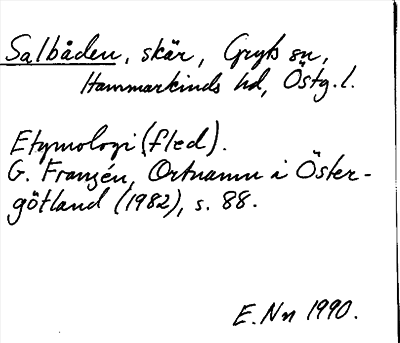 Salbåden, skär, Gryts sn,
Hammarkinds hd, Östg. l.
Etymologi (fled).
G. Franzén, Ortnamn i Öster-
götland (1982), s. 88.
E. Nn 1990.